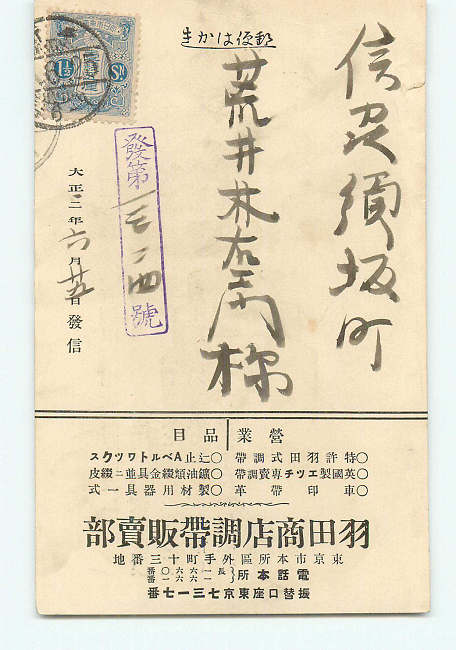 郵便はかき
信州須坂町
荒井林右エ門様
發第一七二四號
大正二年六月廿五日發信
1½Sn
營業品目
〇特許羽田式調帶
〇英國製エツチ專賣調帶
〇車印帶革
〇辷止Aベルトワツクス
〇鑛油類綴金具並ニ綴皮
〇製材用器具一式
羽田商店調帶販賣部
東京市本所區外手町十三番地
電話本所
振替口座東京七三一七番